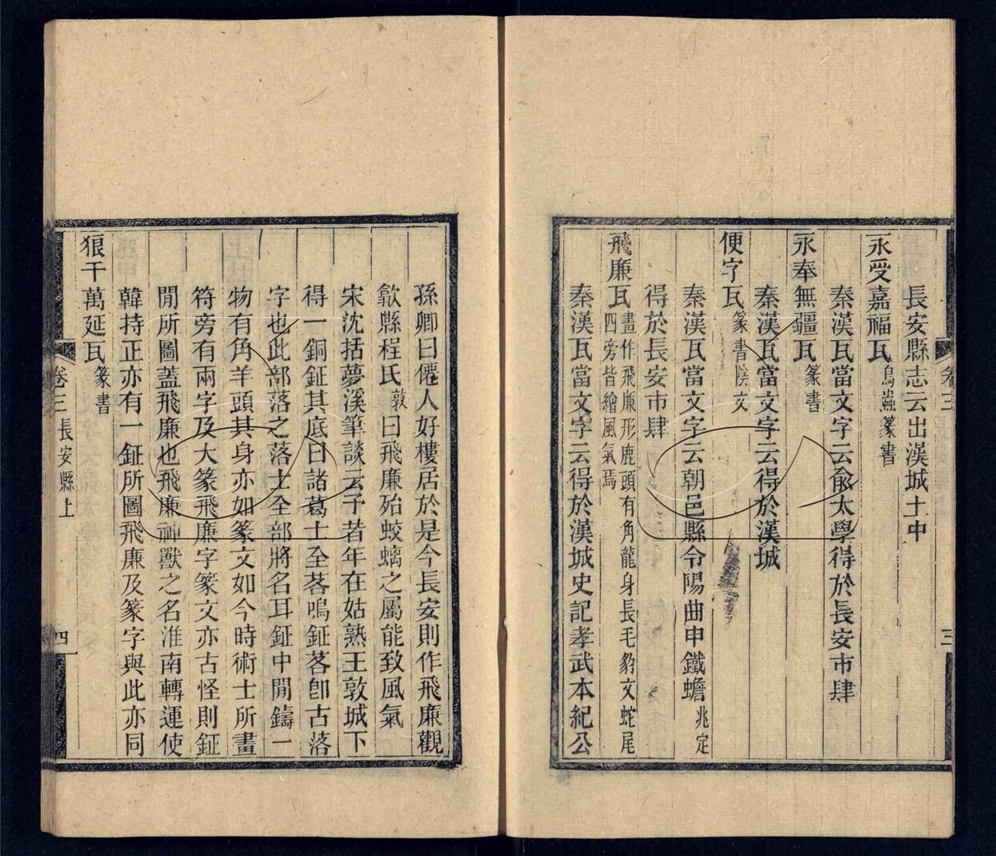 長安縣志云出漢城土中
永受嘉福瓦鳥蟲篆書
秦漢瓦當文字云兪太學得於長安市肆
永奉無疆瓦篆書
秦漢瓦當文字云得於漢城
便字瓦篆書陰文
秦漢瓦當文字云朝邑縣令陽曲申鐵蟾兆定
得於長安市肆
飛廉瓦畫作飛廉形鹿頭有角龍身長毛豹文蛇尾
四旁皆繪風氣焉
秦漢瓦當文字云得於漢城史記孝武本紀公
卷三
三
孫卿曰僊人好樓居於是今長安則作飛廉觀
歙縣程氏敦曰飛廉殆蛟螭之屬能致風氣
宋沈括夢溪筆談云予昔年在姑熟王敦城下
得一銅鉦其底曰諸葛士全茖鳴鉦茖卽古落
字也此部落之落士全部將名耳鉦中閒鑄一
物有角羊頭其身亦如篆文如今時術士所畫
符旁有兩字乃大篆飛廉字篆文亦古怪則鉦
閒所圖蓋飛廉也飛廉神獸之名淮南轉運使
韓持正亦有一鉦所圖飛廉及篆字與此亦同
狼干萬延瓦篆書
卷三 長安縣上
四